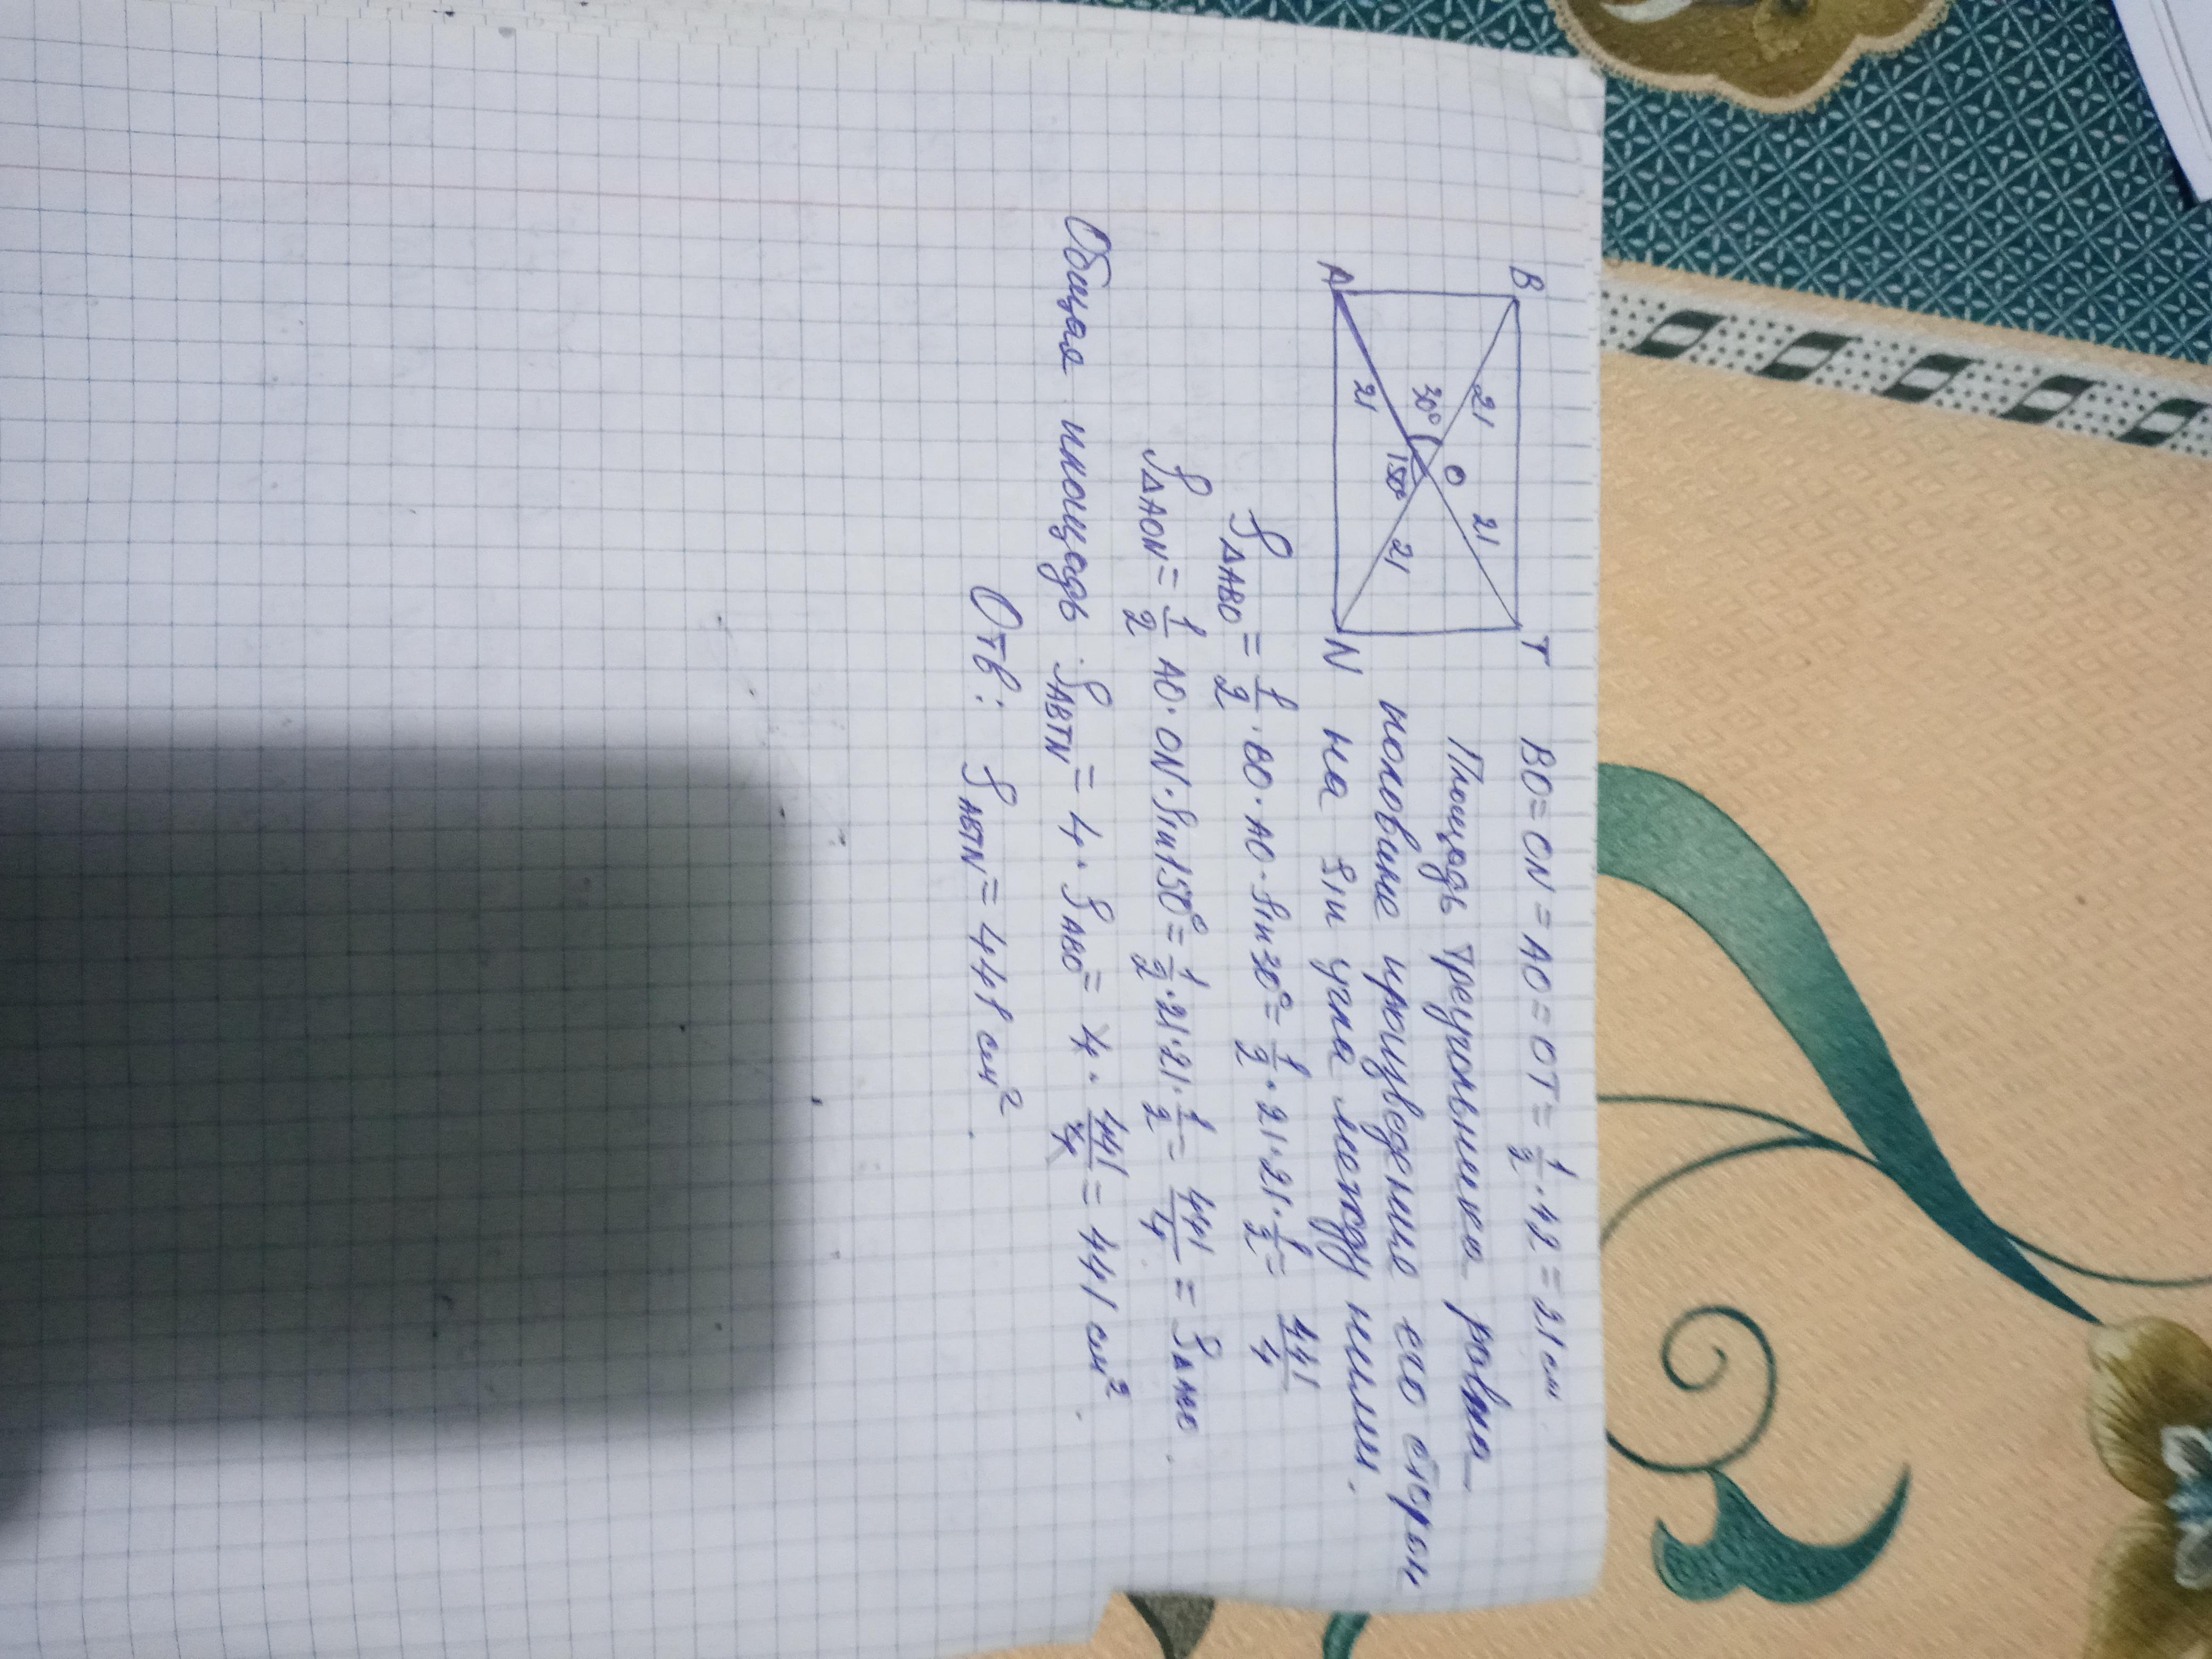 B T
A N
O
21 21
21 21
30° 150°
BO = ON = AO = OT = 1/2 · 42 = 21 см.
Площадь треугольника равна
половине произведение его сторон
на Sin угла между ними.
S△ABO = 1/2 · BO · AO · Sin 30° = 1/2 · 21 · 21 · 1/2 = 441/4
S△AON = 1/2 AO · ON · Sin 150° = 1/2 · 21 · 21 · 1/2 = 441/4 = S△ABO.
Общая площадь S ABTN = 4 · S ABO = 4 · 441/4 = 441 см².
Отв: S ABTN = 441 см².